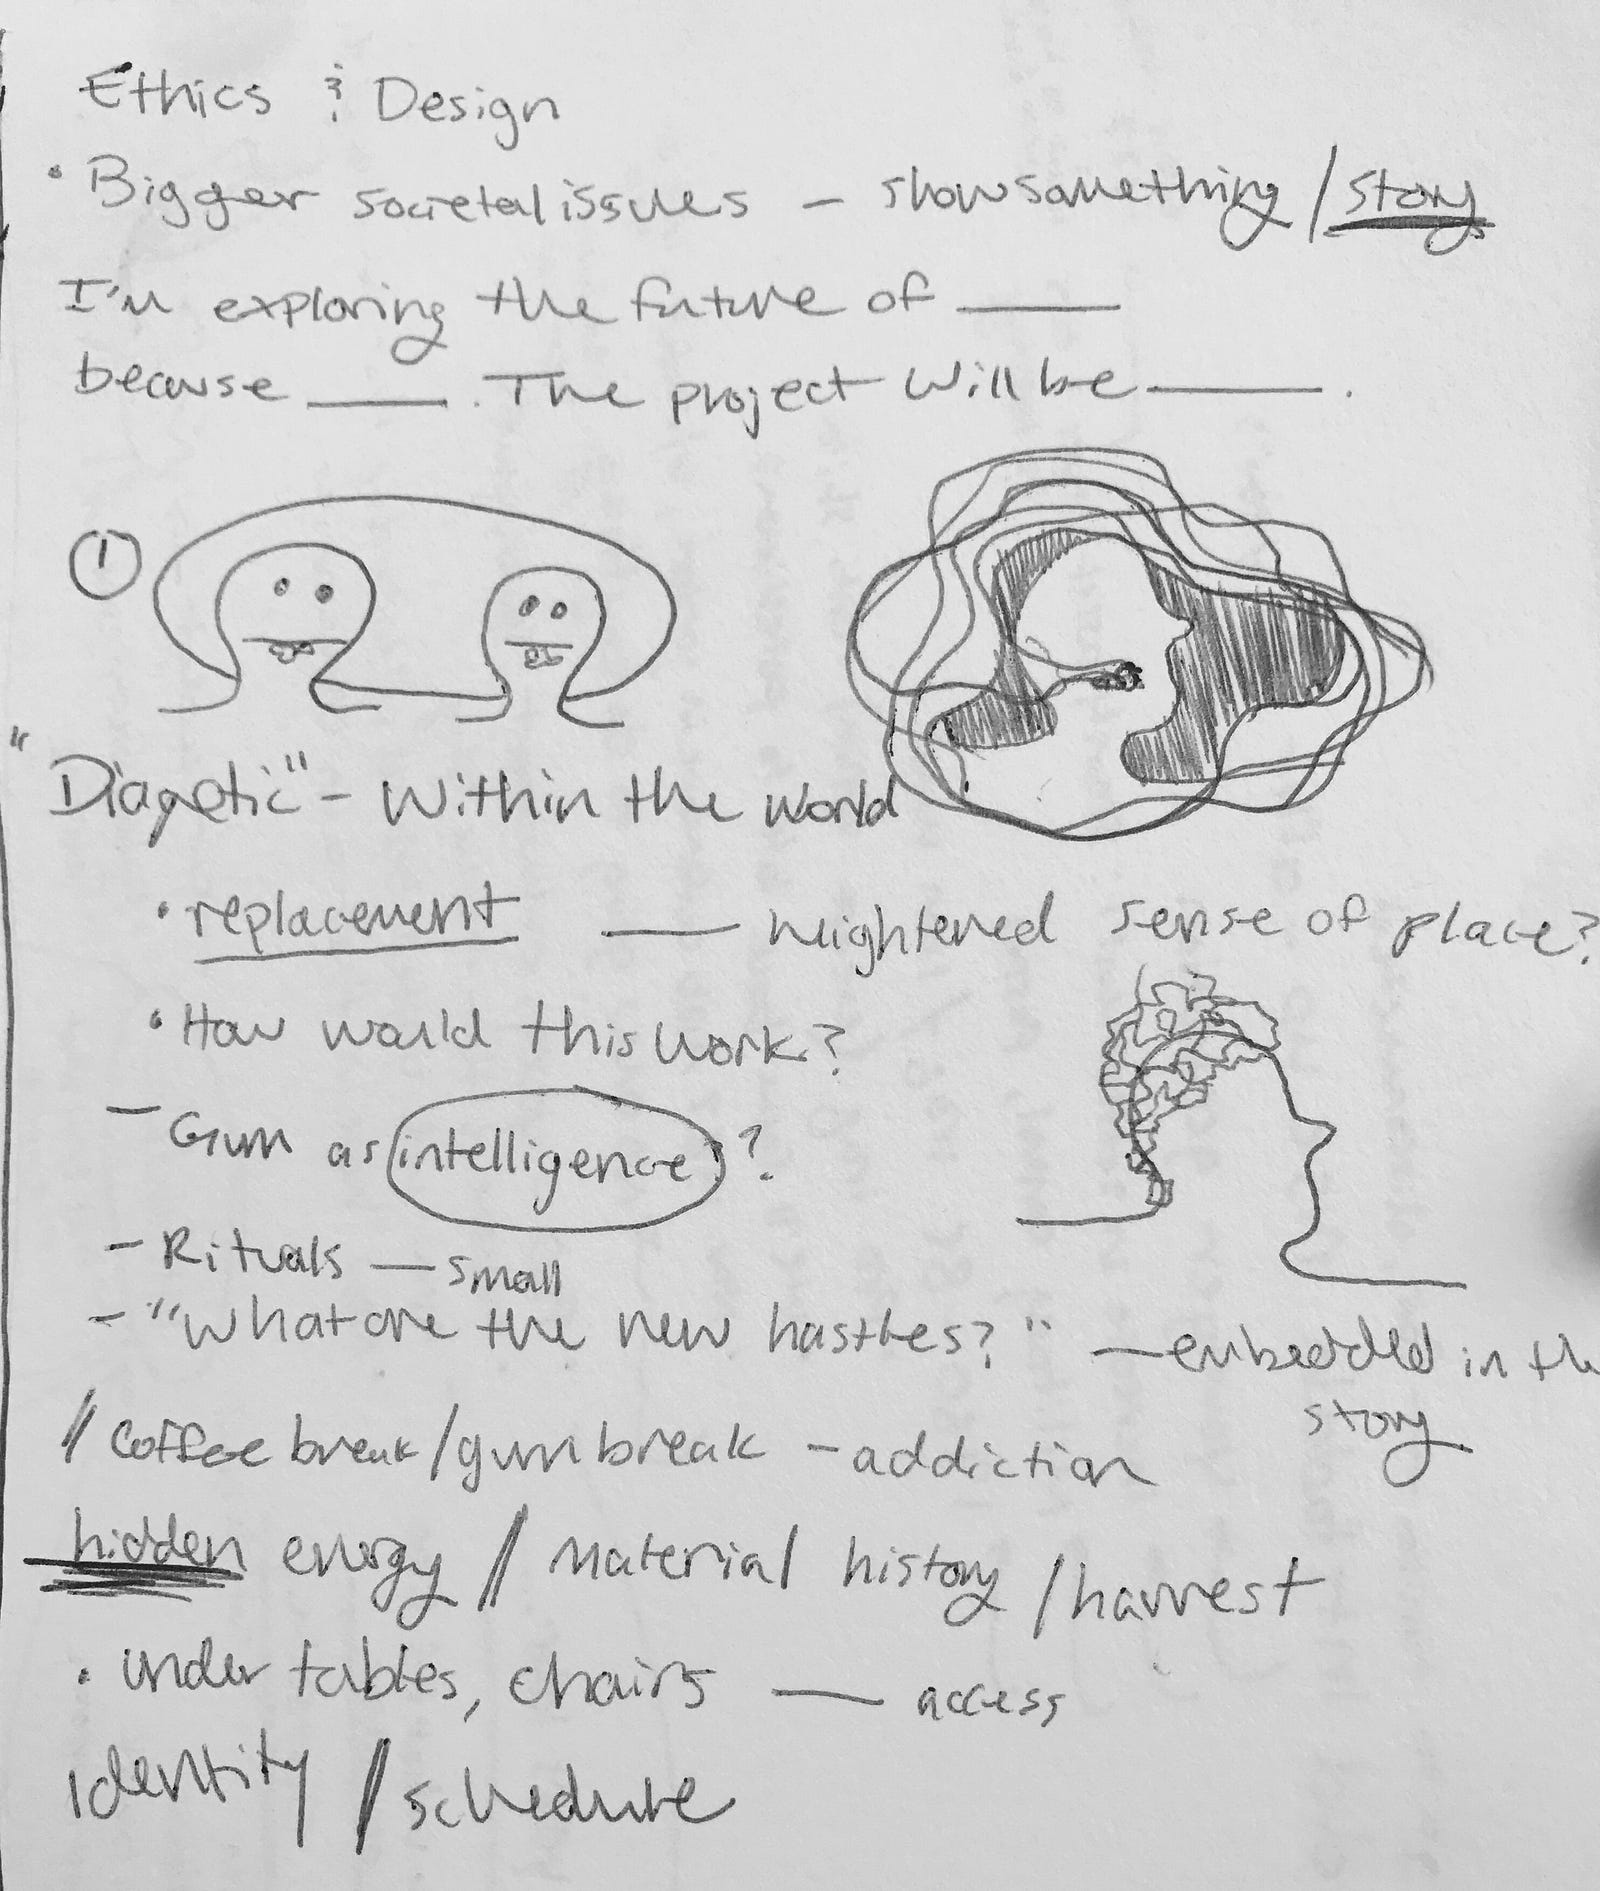 Ethics & Design
• Bigger societal issues – show something / story
I'm exploring the future of ____
because ____. The project will be ____.
1
"Diagetic" – Within the world
• replacement — heightened sense of place?
• How would this work?
– Gum as intelligence?
– Rituals — small
– "What are the new hastles?" — embedded in th
story
// Coffee break/gum break – addiction
hidden energy // Material history / harvest
• under tables, chairs — access
identity // schedule